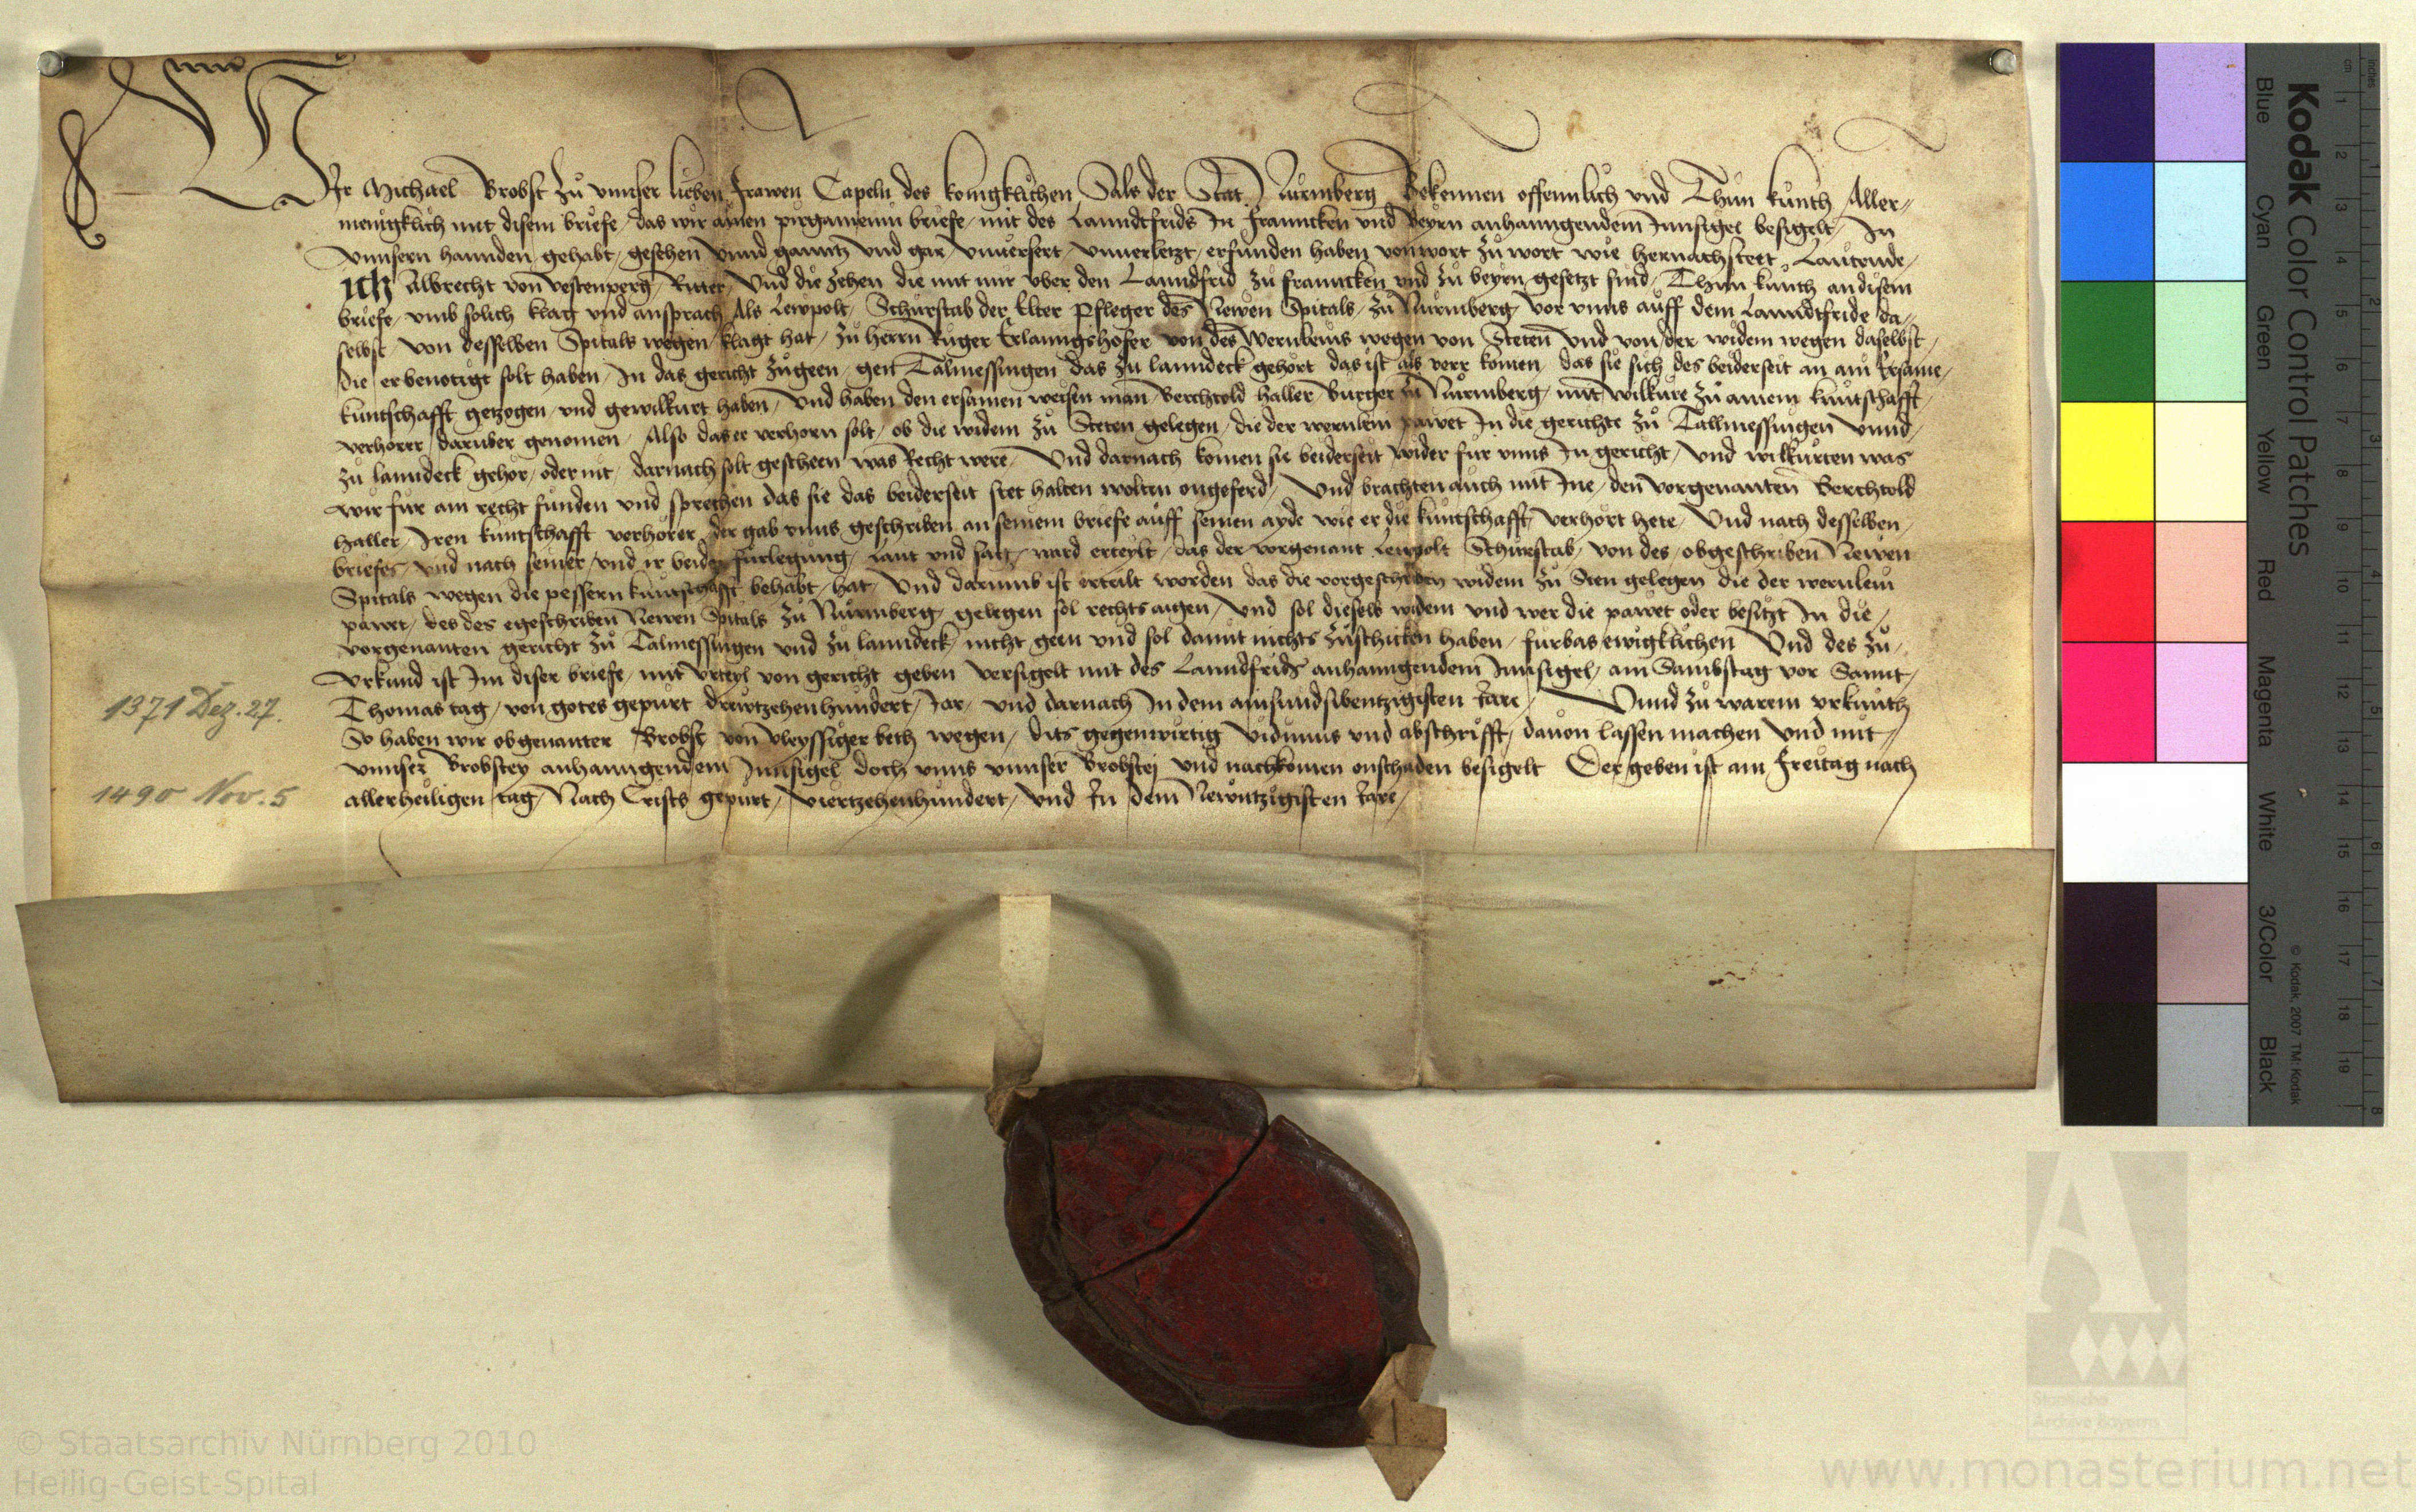 Wir Michael Brobst zu vnnser lieben frawen Capeln des konigklichen Sals der Stat Nurmberg Bekennen offennlich vnd Thun kunth Aller-
menigklich mit disem briefe, das wir ainen pirgamenin briefe, mit des Lanndtfrids In Franncken vnd Beyrn anhanngendem Innsigel besigelt, In
vnnsern hannden gehabt, gesehen vnnd ganntz vnd gar vnuersert, vnuerletzt, erfunden haben von wort zu wort wie hernachsteet, Lautende,
Ich Albrecht von Vestenperg, Ritter, Vnd die zehen die mit mir vber den Lanndfrid zu Franncken vnd zu beyrn gesetzt sind, Thun kunth an disem
briefe, vmb solich klag vnd ansprach, Als Lewpolt, Schurstab der Elter Pfleger des Newen Spitals, zu Nurmberg, vor vnns auff dem Lanndtfride da-
selbst, von desselben Spitals wegen, klagt hat, zu herrn Ruger Erlanngshofer von des Wernleins wegen von Steten vnd von der widem wegen daselbst,
die er benotigt solt haben, In das gericht zugeen, gen Talmessingen das zu lanndeck gehort das ist als verr komen, das sie sich des beiderseit an ain Ersame,
kuntschafft gezogen, vnd gewilkurt haben, Vnd haben den ersamen weisen man Berchtold haller Burger zu Nurmberg, mit wilkure zu ainem kuntschafft,
verhorer, daruber genomen, Also das er verhorn solt, ob die widem zu Steten gelegen, die der wernlein pawet In die gerichte zu Tallmessingen vnnd,
zu lanndeck gehor, oder nit, darnach solt gescheen was Recht were, Vnd darnach komen sie beiderseit wider fur vnns In gericht, Vnd wilkurten was
wir fur ain recht funden vnd sprechen das sie das beiderseit stet halten wolten ongeferd, Vnd brachten auch mit Ine, den vorgenanten Berchtold
haller, Iren kuntschafft verhorer, der gab vnns geschriben an seinem briefe auff seinen ayde wie er die kuntschafft, verhort hete, Vnd nach desselben,
briefes, vnd nach seiner, vnd ir beider furlegung, Laut vnd sag, ward erteylt, das der vorgenant Lewpolt Schurstab, von des, obgeschriben Newen
Spitals wegen die pessern kuntschafft behabt, hat, Vnd darumb ist erteilt worden das die vorgeschriben widem zu Sten gelegen die der wernlein
pawet, des des egeschriben Newen Spitals zu Nurmberg, gelegen sol rechts aigen, Vnd sol dieselb widem vnd wer die pawet oder besitzt In die,
vorgenanten gericht zu Talmessingen vnd zu lanndeck, nicht geen vnd sol damit nichts zuschicken haben, furbas ewigklichen Vnd des zu,
vrkund ist Im diser briefe, mit vrteyl von gericht geben versigelt mit des Lanndfrids anhanngendem Innsigel, am Sambstag vor Sannt,
Thomas tag, von gotes gepurt dreutzehenhundert, Jar, vnd darnach In dem ainsundsibentzigisten Jare, Vnnd zu warem vrkunth
So haben wir obgenanter Brobst von vleyssiger beth wegen, dits gegenwirtig Vidimus vnd abschrifft, dauon lassen machen vnd mit,
vnnser Brobstey anhanngendem Innsigel doch vnns vnnser Brobstej vnd nachkomen onschaden besigelt Der geben ist am Freitag nach
allerheiligen tag, Nach Crists gepurt, viertzehenhundert, vnd In dem Newntzigisten Jare,
1371 Dez. 27.
1490 Nov. 5
Kodak Color Control Patches
© Kodak, 2007 TM: Kodak
Blue Cyan Green Yellow Red Magenta White 3/Color Black
cm 1 2 3 4 5 6 7 8 9 10 11 12 13 14 15 16 17 18 19
inches 1 2 3 4 5 6 7 8
A
Staatliche
Archive Bayerns
© Staatsarchiv Nürnberg 2010
Heilig-Geist-Spital
www.monasterium.net